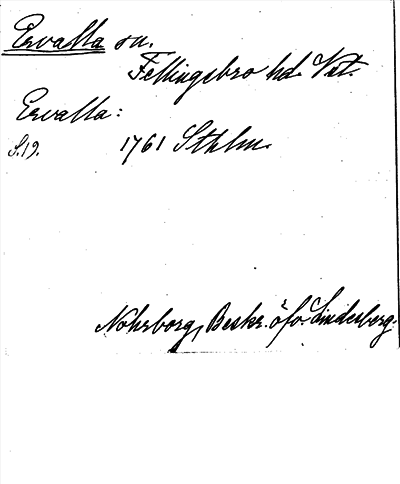 Ervalla sn.
Fellingsbro hd. Vst.
Ervalla:
S.19. 1761 Sthlm.
Nohrborg, Beskr. öfv. Linderberg.